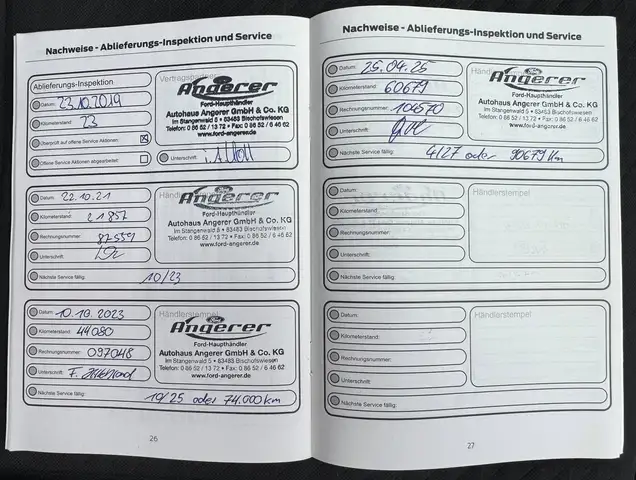 Nachweise - Ablieferungs-Inspektion und Service
Ablieferungs-Inspektion
Datum: 23.10.2019
Kilometerstand: 23
Überprüft auf offene Service Aktionen:
Offene Service Aktionen abgearbeitet:
Vertragspartner
Ford
Angerer
Ford-Haupthändler
Autohaus Angerer GmbH & Co. KG
Im Stangenwald 5 • 83483 Bischofswiesen
Telefon: 0 86 52 / 13 72 • Fax: 0 86 52 / 6 46 62
www.ford-angerer.de
Unterschrift:
Datum: 22.10.21
Kilometerstand: 21857
Rechnungsnummer: 87559
Unterschrift:
Händlerstempel
Ford
Angerer
Ford-Haupthändler
Autohaus Angerer GmbH & Co. KG
Im Stangenwald 5 • 83483 Bischofswiesen
Telefon: 0 86 52 / 13 72 • Fax: 0 86 52 / 6 46 62
www.ford-angerer.de
Nächste Service fällig: 10/23
Datum: 10.10.2023
Kilometerstand: 44080
Rechnungsnummer: 097048
Unterschrift: F.
Händlerstempel
Ford
Angerer
Ford-Haupthändler
Autohaus Angerer GmbH & Co. KG
Im Stangenwald 5 • 83483 Bischofswiesen
Telefon: 0 86 52 / 13 72 • Fax: 0 86 52 / 6 46 62
www.ford-angerer.de
Nächste Service fällig: 10/25 oder 74.000 km
26
Nachweise - Ablieferungs-Inspektion und Service
Datum: 25.04.25
Kilometerstand: 60679
Rechnungsnummer: 104570
Unterschrift:
Händlerstempel
Ford
Angerer
Ford-Haupthändler
Autohaus Angerer GmbH & Co. KG
Im Stangenwald 5 • 83483 Bischofswiesen
Telefon: 0 86 52 / 13 72 • Fax: 0 86 52 / 6 46 62
www.ford-angerer.de
Nächste Service fällig: 4/27 oder 90679 Km
Datum:
Kilometerstand:
Rechnungsnummer:
Unterschrift:
Händlerstempel
Nächste Service fällig:
Datum:
Kilometerstand:
Rechnungsnummer:
Unterschrift:
Händlerstempel
Nächste Service fällig:
27